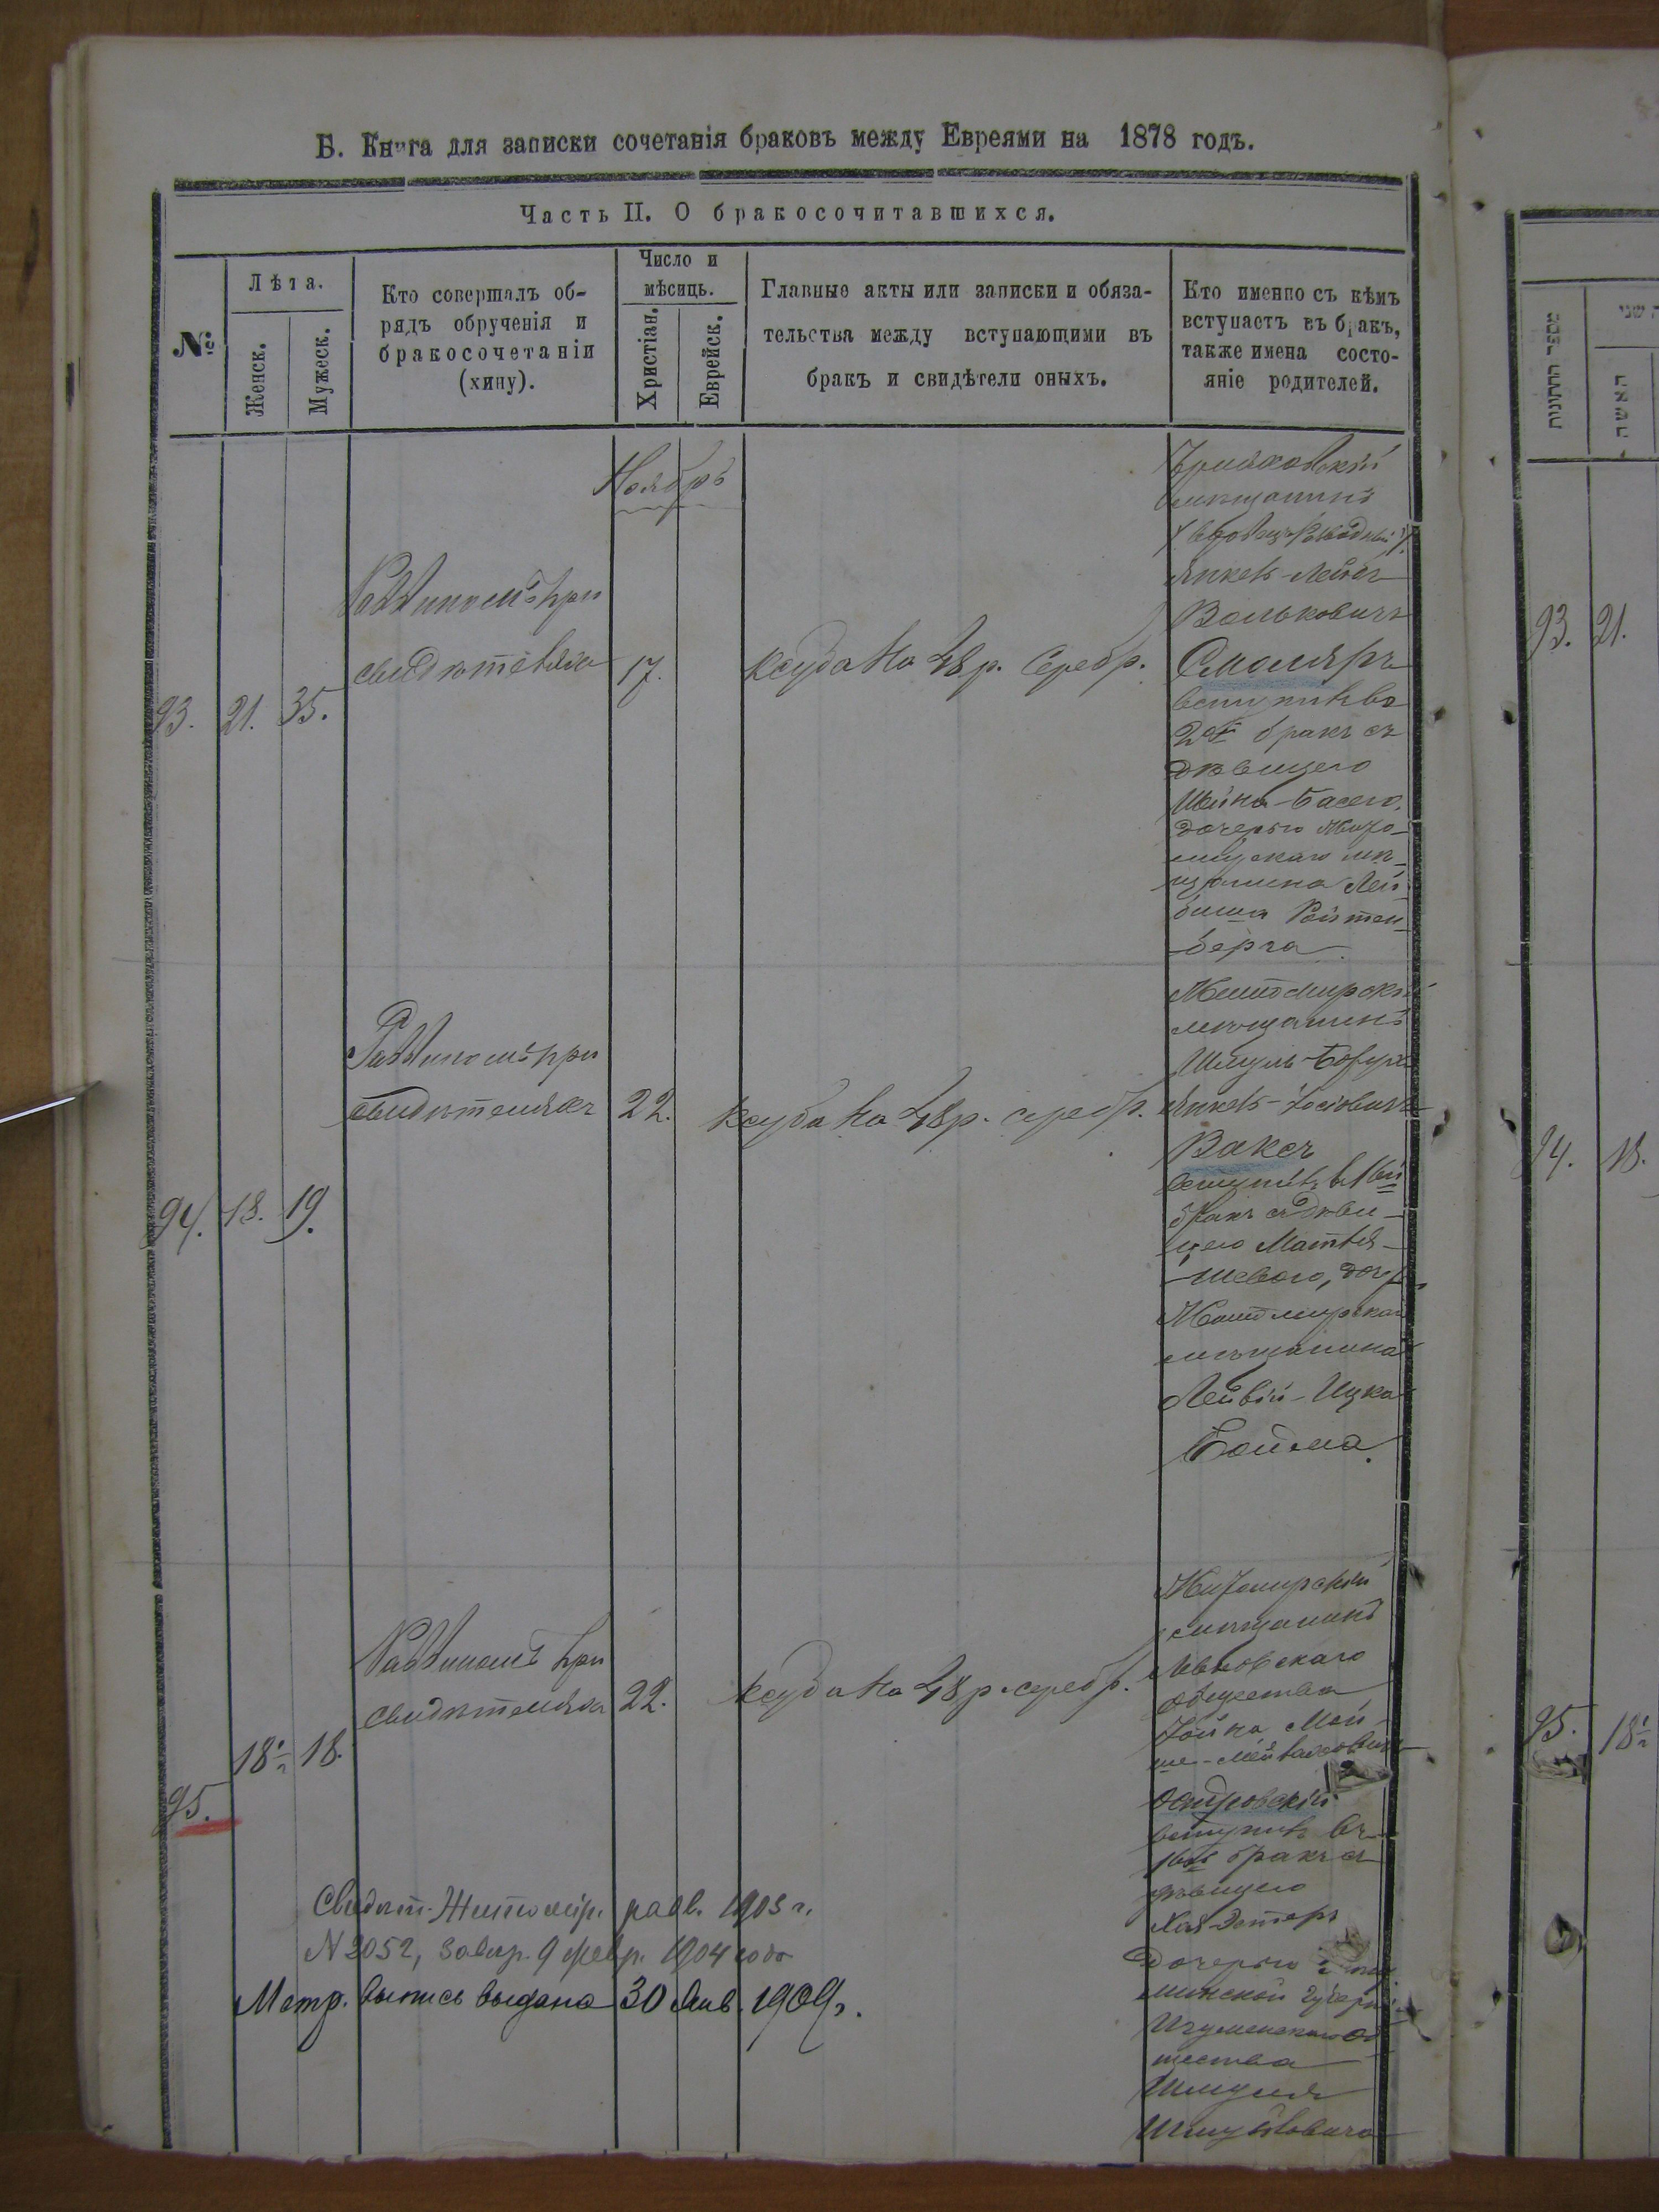 Б. Книга для записки сочетанія браковъ между Евреями на 1878 годъ.
Часть II. О бракосочитавшихся.
№
Лѣта.
Женск.
Мужеск.
Кто совершалъ об-
рядъ обрученія и
бракосочетаніи
(хипу).
Число и
мѣсяць.
Христіан.
Еврейск.
Главные акты или записки и обяза-
тельства между вступающими въ
бракъ и свидѣтели оныхъ.
Кто именно съ кѣмъ
вступаетъ въ бракъ,
также имена состо-
яніе родителей.
Ноябрь
93. 21. 35.
Раввиномъ при
свидѣтеляхъ
17.
Ксуба на 48 р. серебр.
мѣщанинъ
Янкель-Лейбъ
Вольковичъ
Смоляръ
вступилъ во
2ой бракъ съ
дѣвицею
Шейна-Басею,
дочерью Жито-
мирскаго мѣ-
щанина Лей-
биша Ройтен-
берга
94. 18. 19.
Раввиномъ при
свидѣтеляхъ
22.
Ксуба на 48 р. серебр.
Житомирскій
мѣщанинъ
Шмуль-Борухъ
Янкель-Іосіовичъ
Ваксъ
вступилъ въ 1ый
бракъ съ дѣви-
цею Матлей-
-Шевою, доч.
Житомирскаго
мѣщанина
Лейвій-Ицка
Бойма.
95.
18. 18.
Раввиномъ при
свидѣтеляхъ
22.
Ксуба на 48 р. серебр.
Житомирскій
мѣщанинъ
общества
Хойна Мой-
Островскій
вступилъ въ
1ый бракъ съ
дѣвицею
Хая-Эстеръ
дочерью
Минской губерніи
Игуменскаго об-
щества
Шмуля
Шмульовича
Свидѣт. Житомір. равв. 1903 г.
N 2052, завѣр. 9 февр. 1904 года
Метр. выпись выдана 30 Янв. 1909 г.
מספר החתונות
האשה
93. 21.
94. 18.
95. 18